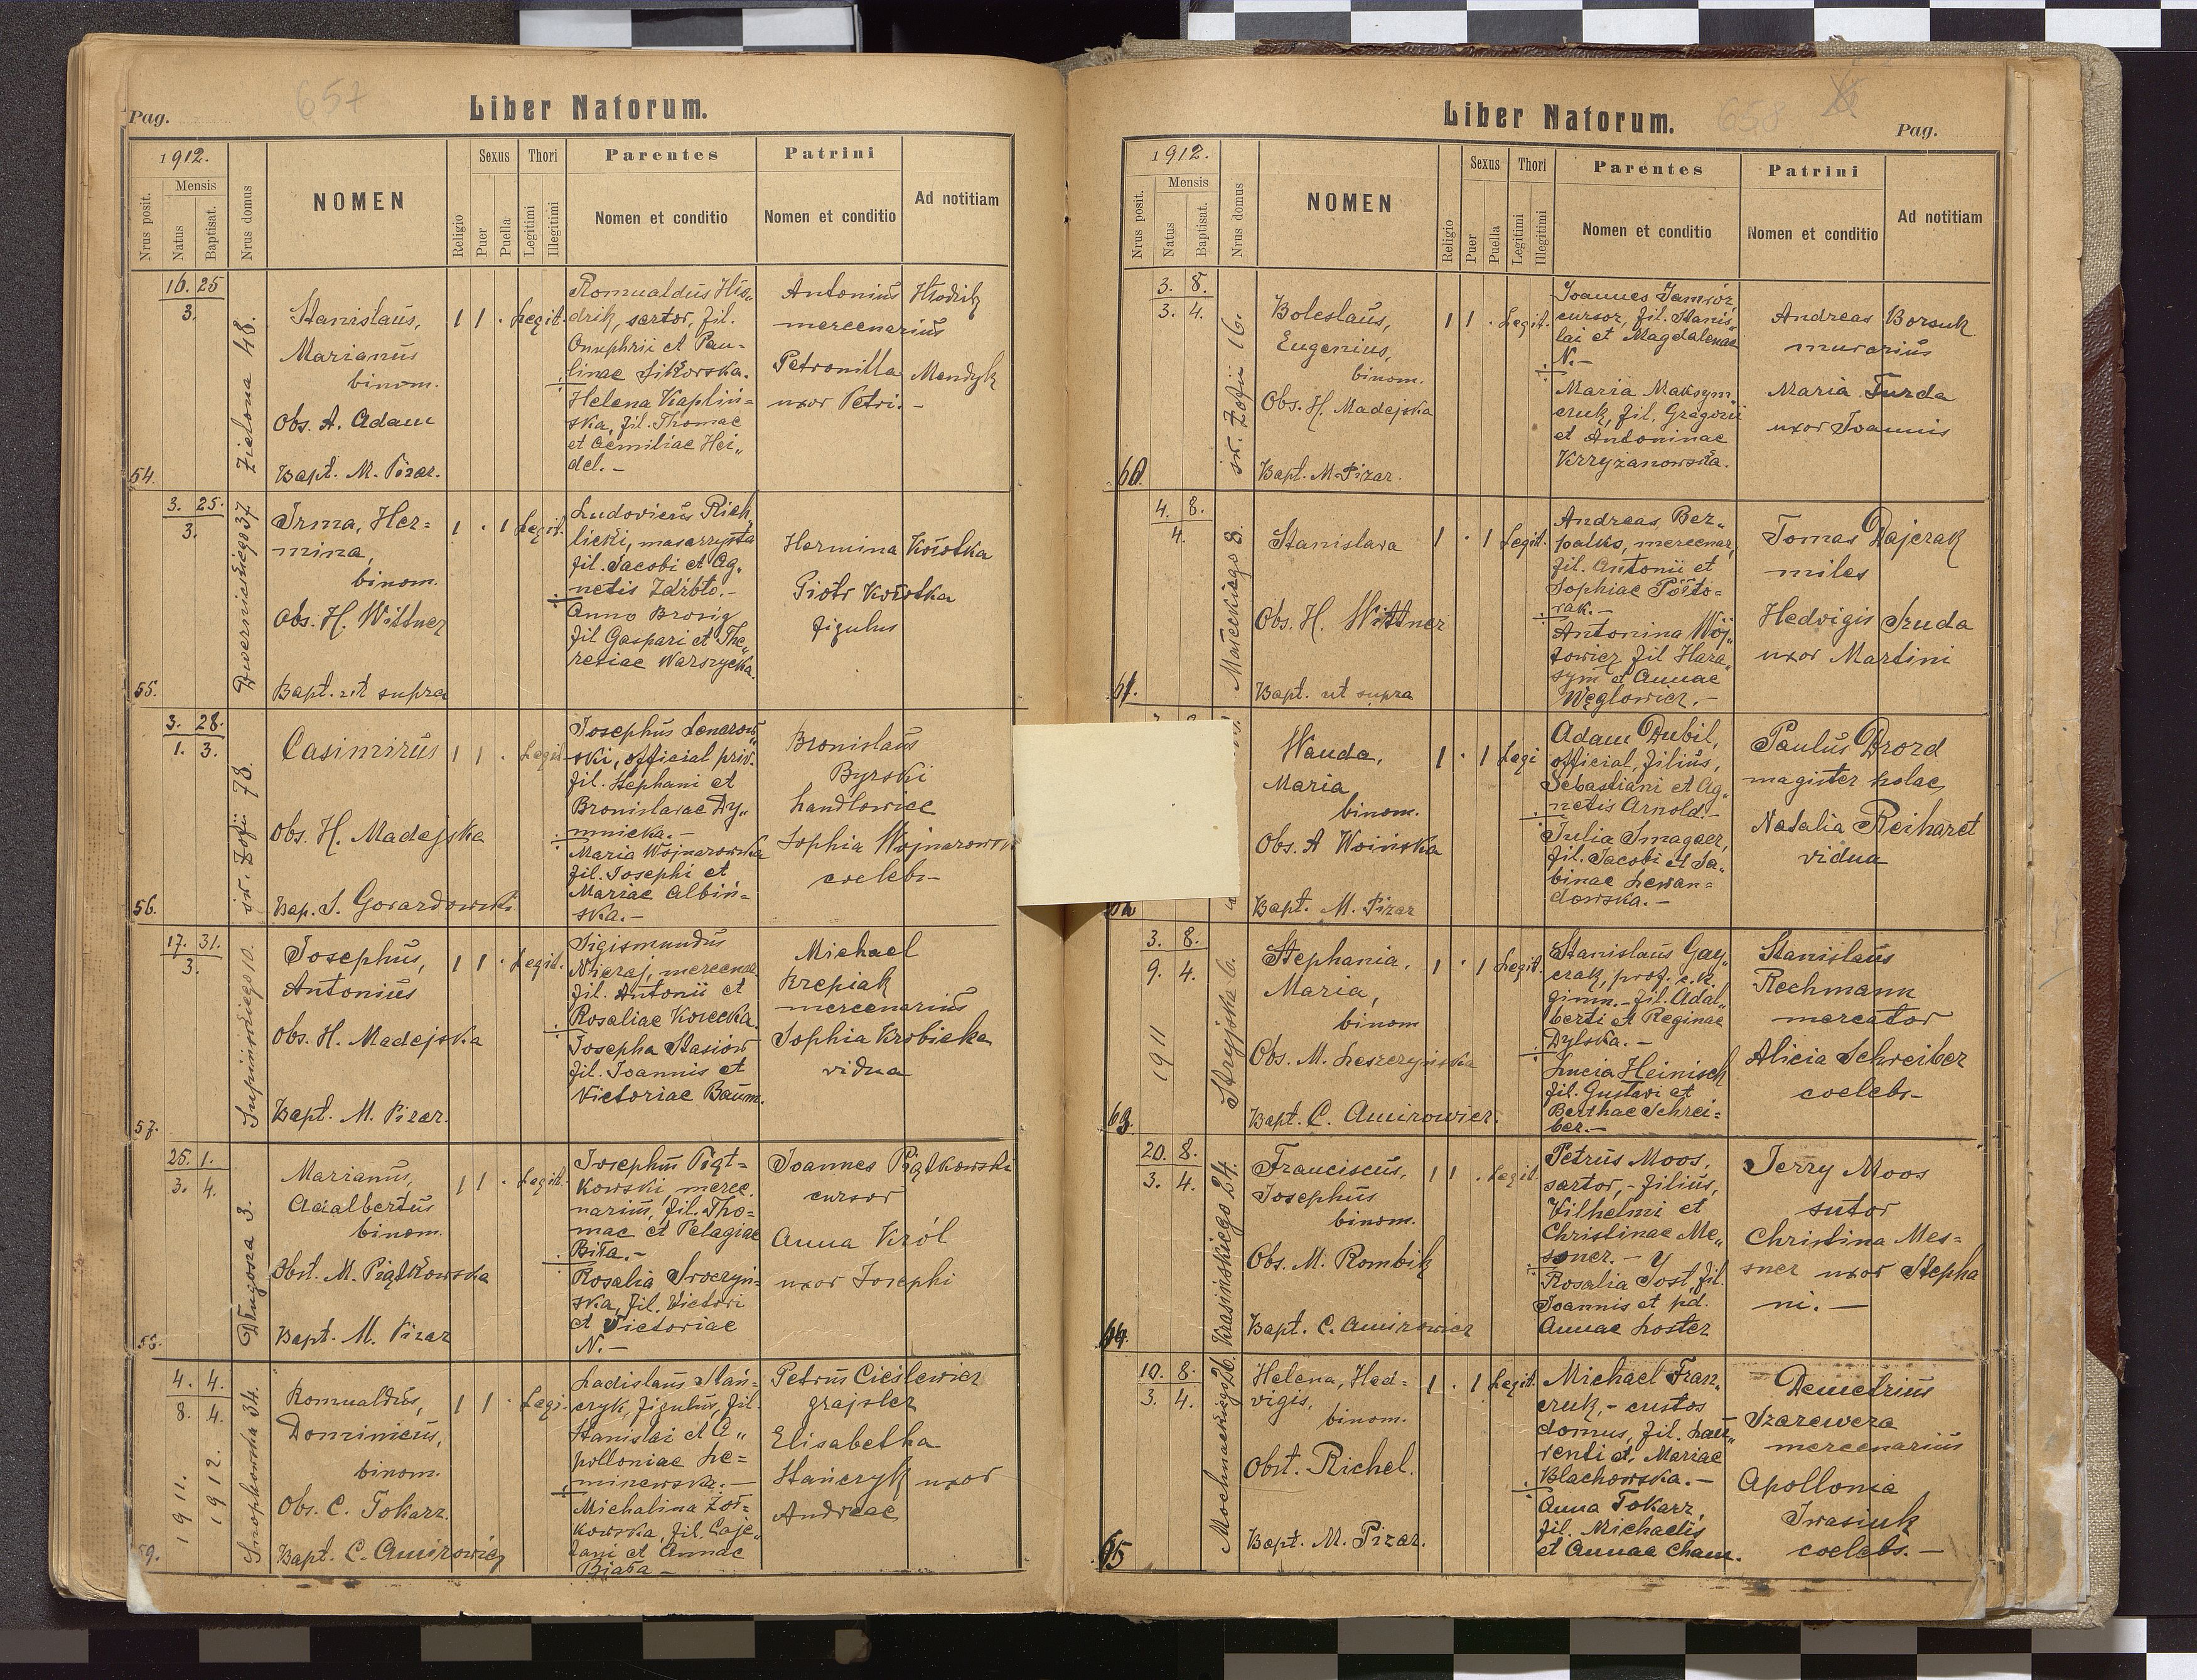 657
Pag.
Liber Natorum.
1912.
Nrus posit.
Mensis
Natus
Baptisat.
Nrus domus
NOMEN
Religio
Sexus
Puer
Puella
Thori
Legitimi
Illegitimi
Parentes
Nomen et conditio
Patrini
Nomen et conditio
Ad notitiam
54.
16. 25
3.
Zielona 48.
Stanislaus,
Marianus
binom.
Obs. A. Adam
Bapt. M. Pizar.
1 1 · Legit.
Romualdus
sartor, fil.
Onuphrii et Pau-
linae
Helena Kapliń-
ska, fil. Thomae
et Aemiliae Hei-
del. -
Antonius
mercenarius
Petronilla Mendyk
uxor Petri. -
55.
3. 25.
3.
37
Irma, Her=
mina,
binom.
Obs. H. Wittner
Bapt. ut supra
1 · 1 Legit.
Ludovicus Rich
licki,
fil. Jacobi et Ag-
netis
Anna Brosig
fil Gaspari et The-
resiae Warszycka.
Hermina
Piotr
figulus
56.
3. 28.
1. 3.
św. Zofii 78.
Casimirus
Obs. H. Madejska
Bap. S. Gorazdowski
1 1 · Legit
Josephus Lenarow
ski, official priv.
fil. Stephani et
Bronislavae Dy-
mnicka. -
Maria Wojnarowska
fil. Josephi et
Mariae Albiń-
ska. -
Bronislaus
Byrski
handlowiec
Sophia Wojnarowsk
coelebs-
57.
17. 31.
3.
Supińskiego 10.
Josephus,
Antonius
Obs. H. Madejska
Bapt. M. Pizar.
1 1 · Legit.
Sigismundus
mercenar
fil. Antonii et
Rosaliae
Josepha Stasiów
fil. Joannis et
Victoriae Baum.
Michael
Krepiak
mercenarius
Sophia Krobicka
vidua
58.
25. 1.
3. 4.
Długosza 3.
Marianus,
Adalbertus
binom.
Obst. M. Piątkowska
Bapt. M. Pizar
1 1 · Legit.
Josephus Piąt=
kowski, merce
narius, fil. Tho=
mae et Pelagiae
Biła. -
Rosalia
ska, fil. Victori
et Victoriae
N. -
Joannes Piątkowski
cursor
Anna Król
uxor Josephi
59.
4. 4.
8. 4.
1911.
1912.
Snopkowska 34.
Romualdus,
Dominicus,
binom.
Obs. C. Tokarz.
Bapt. C. Amirowicz
1 1 · Legi.
Ladislaus Stań-
czyk, figulus, fil.
Stanislai et A-
polloniae Le=
minewska. -
Michalina Żół-
kowska, fil. Caje-
tani et Annae
Biała -
Petrus Cieślewicz
grajsler
Elisabetha
Stańczyk uxor
Andreae
Liber Natorum.
658
Pag.
1912.
Nrus posit.
Mensis
Natus
Baptisat.
Nrus domus
NOMEN
Religio
Sexus
Puer
Puella
Thori
Legitimi
Illegitimi
Parentes
Nomen et conditio
Patrini
Nomen et conditio
Ad notitiam
60.
3. 8.
3. 4.
św. Zofii 16.
Boleslaus,
Eugenius,
binom.
Obs. H. Madejska
Bapt. M. Pizar.
1 1 · Legit.
Joannes
cursor, fil. Stanis-
lai et Magdalenae
N. -
Maria Maksym
czuk, fil. Gregorii
et Antoninae
Krzyżanowska.
Andreas Borsuk
murarius
Maria Furda
uxor Joannis
61.
4. 8.
4.
Małeckiego 8.
Stanislava
Obs. H. Wittner
Bapt. ut supra
1 · 1 Legit.
Andreas Ber-
palko, mercenar,
fil. Antonii et
Sophiae Pòłto-
rak. -
Antonina Wój-
towicz fil Hara-
sym et Annae
Węglowicz. -
Tomas Dajczak
miles
Hedvigis Sruda
uxor Martini
62
Wanda,
Maria
binom.
Obs. A Woińska
Bapt. M. Pizar
1 · 1 Legi
Adam Dubil,
official, filius,
Sebastiani et Ag-
netis Arnold. -
Julia Smagaer,
fil. Jacobi et Sa-
binae Lewan=
dowska. -
Paulus Drozd
magister
Natalia Reiharet
vidua
63.
3. 8.
9. 4.
1911
Stryjska 6.
Stephania,
Maria,
binom
Obs. M. Leszczyńska
Bapt. C. Amirowicz.
1 · 1 Legit.
Stanislaus Gay-
czak, prof. c.k.
gimn. - fil. Adal-
berti et Reginae
Dylska. -
Lucia Heinisch
fil. Gustavi et
Berthae Schrei=
ber. -
Stanislaus
Rechmann
mercator
Alicia Schreiber
coelebs-
64.
20. 8.
3. 4.
Krasińskiego 24.
Franciscus,
Josephus
binom.
Obs. M. Rombik
Bapt. C. Amirowicz
1 1 · Legit
Petrus Moos,
sartor, - filius,
Vilhelmi et
Christinae Me-
ssner. -
Rosalia Jost, fil.
Joannis et pd.
Annae Loster
Jerry Moos
sutor
Christina Mes=
sner uxor Stepha
ni. -
65
10. 8.
3. 4.
Mochnackiego 26.
Helena, Hed=
vigis,
binom.
Obst. Richel.
Bapt. M. Pizar.
1 · 1 Legit.
Michael Fran-
czuk, - custos
domus, fil. Lau-
renti et Mariae
Blachowska. -
Anna Tokarz,
fil. Michaelis
et Annae Cham.
Demetrius
Szarewera
mercenarius
Apollonia
Iwasiuk
coelebs. -